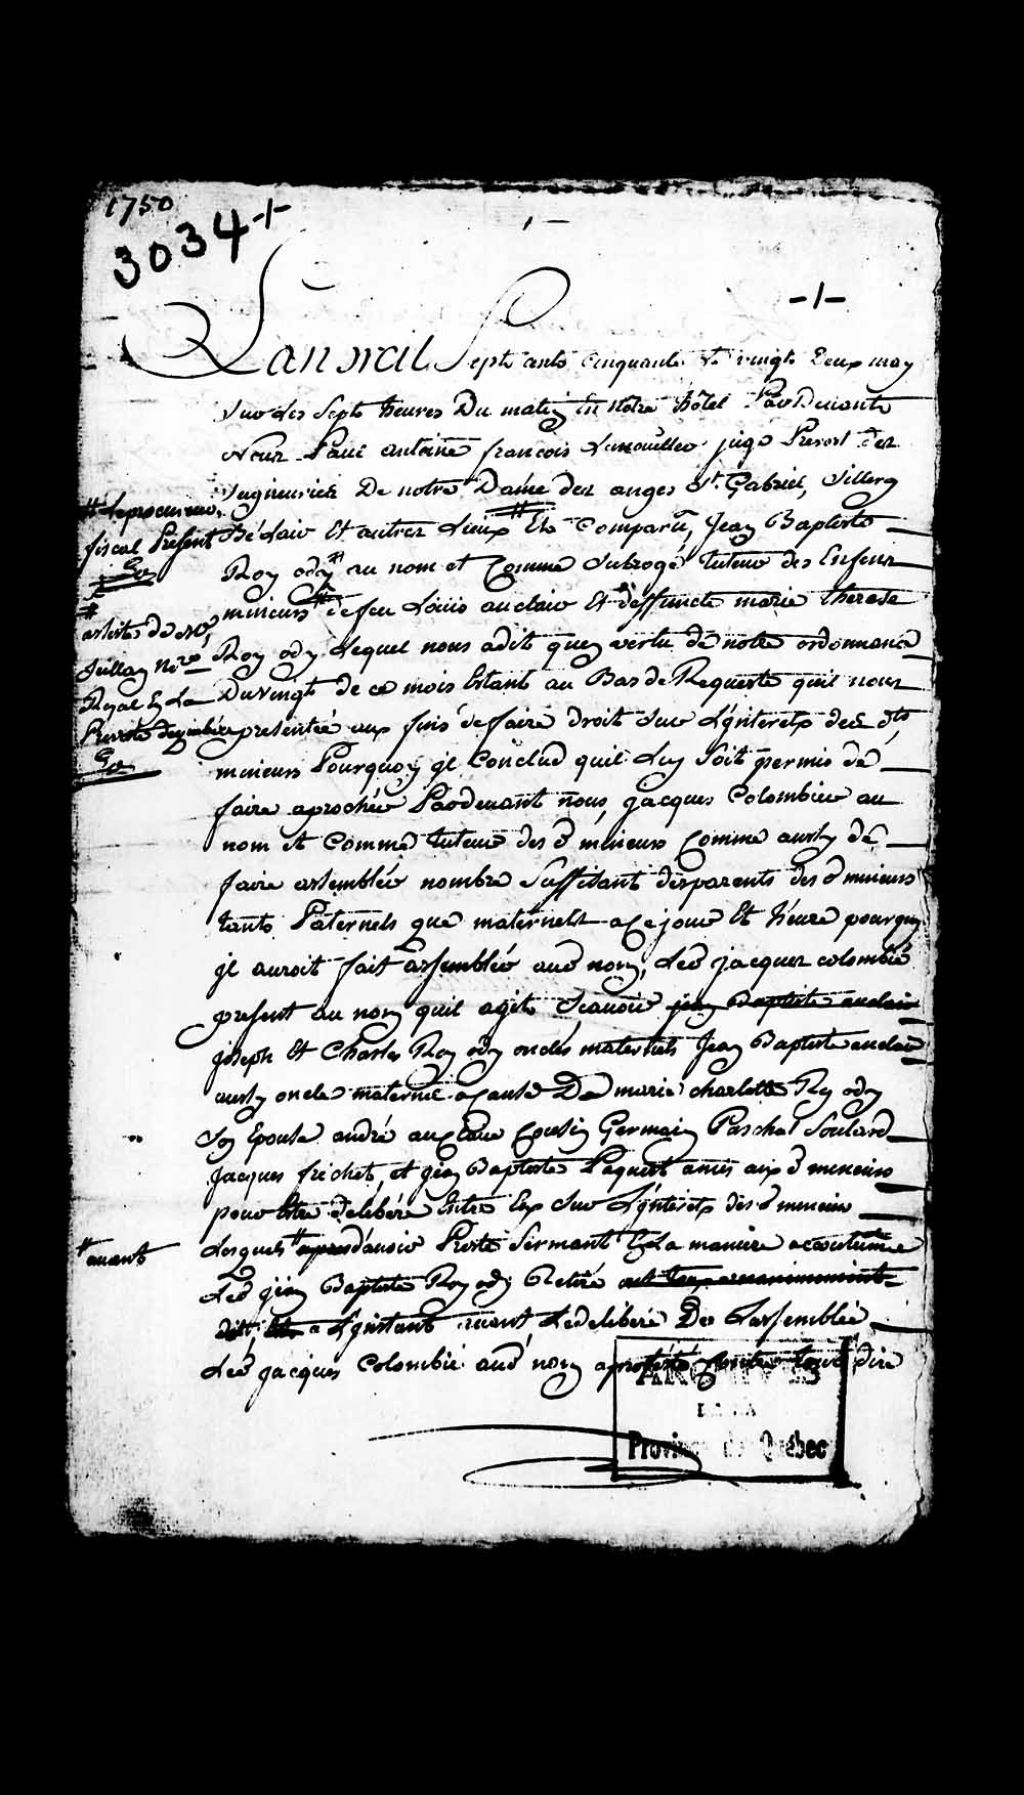 1750
3034 -/-
1 -
-/-
Lan mil Sept cents Cinquante Le vingt Deux may
Sur les Sept heures Du matin En Notre hôtel Pardevant
Nous Paul antoine françois Lanouiller juge Prevost des
Seigneuries De notre Dame des anges St. Gabriel, Sillery
# Le procureur
fiscal Présent
Bélair Et autres Lieux # Est Comparu, Jean Baptiste
Roy ody # au nom et Comme Subrogé tuteur des Enfens
#
assisté de me
Jullien Nre
Royal En La
Prevosté
mineurs # de feu Loüis auclair Et deffuncte marie therese
Roy ody Lequel nous adit quen vertu de notre ordonnance
Du vingt de ce mois Estant au Bas de Requeste quil nous
presentée aux fins de faire droit Sur Lynterets des dts
mineurs Pourquoy jl Conclud quil Luy Soit permis de
faire aprochér Pardevant nous, jacques Colombier au
nom et Comme tuteur des d mineurs Comme aussy de
faire assemblér nombre Suffisant desparents des d mineurs
tants Paternels que maternels a Ce jour Et héure pourquoy
jl auroit fait assemblér aud nom, Led jacques colombié
present au nom quil agit Scavoir jean Baptiste auclair
joseph Et Charles Roy ody oncles maternels Jean Baptiste auclair
aussy oncle maternel a Cause De marie charlotte Roy ody
Son Epouse andré auclair Cousin Germain Paschal Soulard
Jacques frichet, et jean Baptiste Paquet amis aux d mineurs
pour Estre delibéré Entre Eux Sur Lynterets des d mineurs
# avant
Lesquels # apres d'avoir Presté Serment En La maniere acoutumée
Led jean Baptiste Roy ody Retiré ont tous unanimement
dit, a Lynstant avant Ledeliberé De Lassemblée
Led jacques Colombié aud nom aprotesté Contre tous dire
ARCHIVES
DE LA
Province de Québec